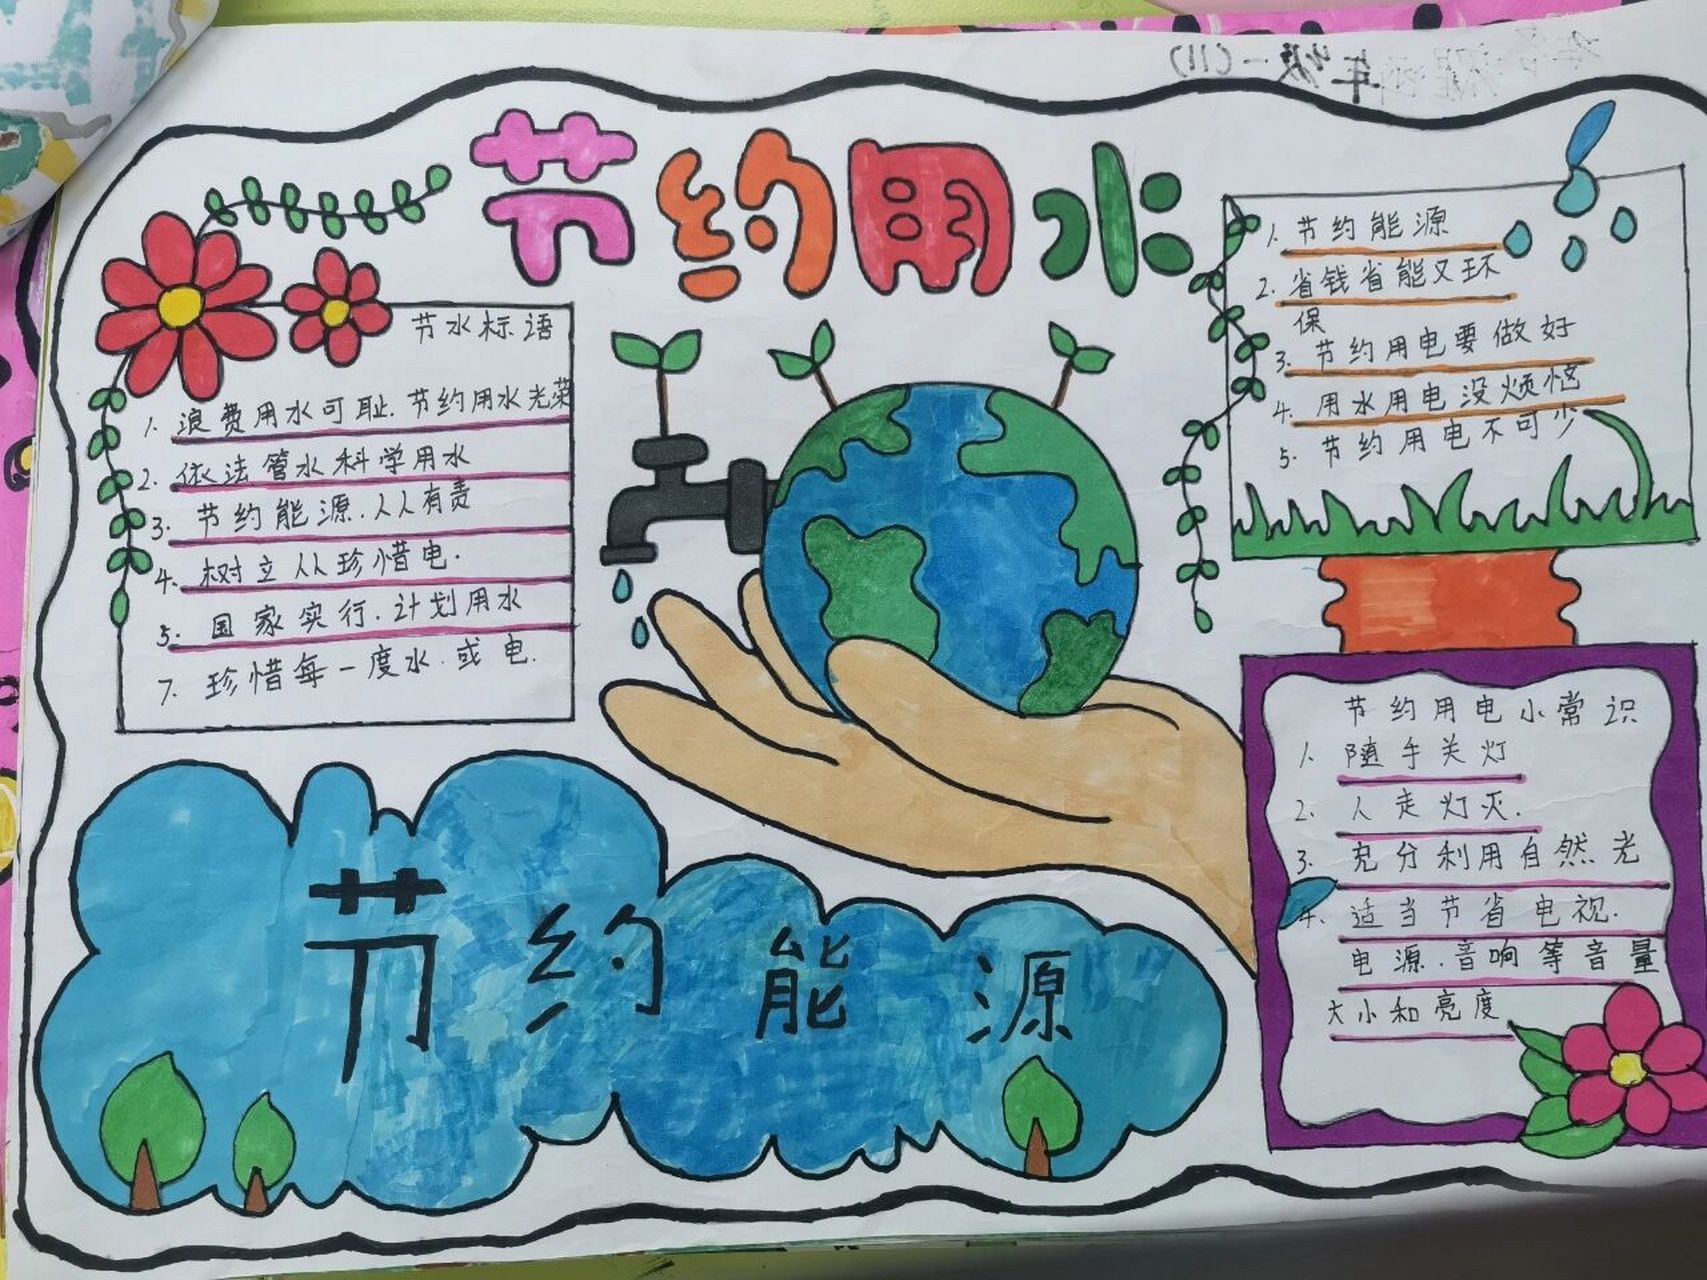 节约用水
节水标语
1. 浪费用水可耻.节约用水光荣
2. 依法管水科学用水
3. 节约能源.人人有责
4. 树立从珍惜电.
5. 国家实行.计划用水
7. 珍惜每一度水.或电.
1. 节约能源
2. 省钱省能又环
保
3. 节约用电要做好
4. 用水用电没烦恼
5. 节约用电不可少
节约用电小常识
1. 随手关灯
2. 人走灯灭.
3. 充分利用自然光
4. 适当节省电视.
电源.音响等音量
大小和亮度
节约能源